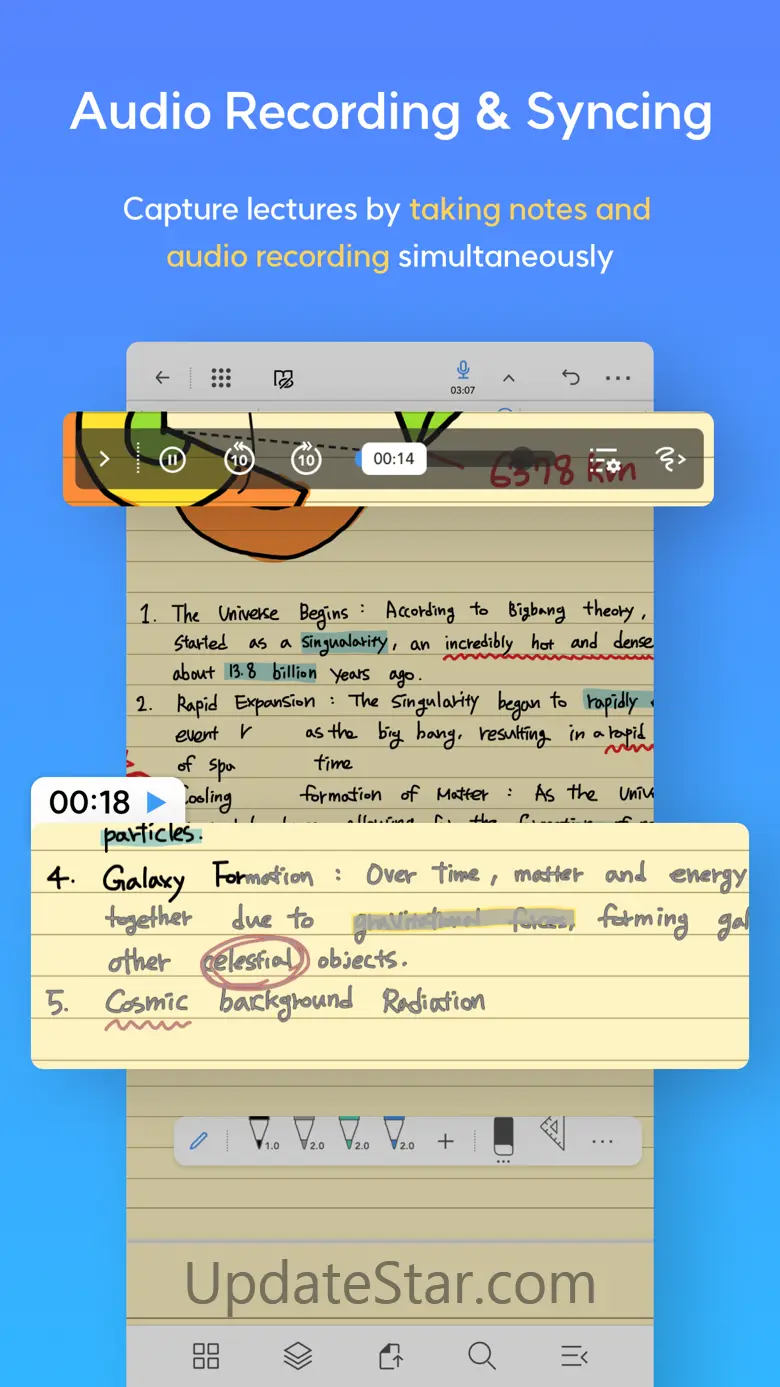 Audio Recording & Syncing
Capture lectures by taking notes and
audio recording simultaneously
03:07
10
10
00:14
6378 km
1. The Universe Begins : According to Bigbang theory,
started as a singualarity, an incredibly hot and dense
about 13.8 billion years ago.
2. Rapid Expansion : The singularity began to rapidly
event as the big bang, resulting in a rapid
of spa time
Cooling formation of Matter : As the Univ
00:18
particles.
4. Galaxy Formation : Over Time, matter and energy
together due to gravitational forces, forming gal
other celestial objects.
5. Cosmic background Radiation
1.0
2.0
2.0
2.0
UpdateStar.com